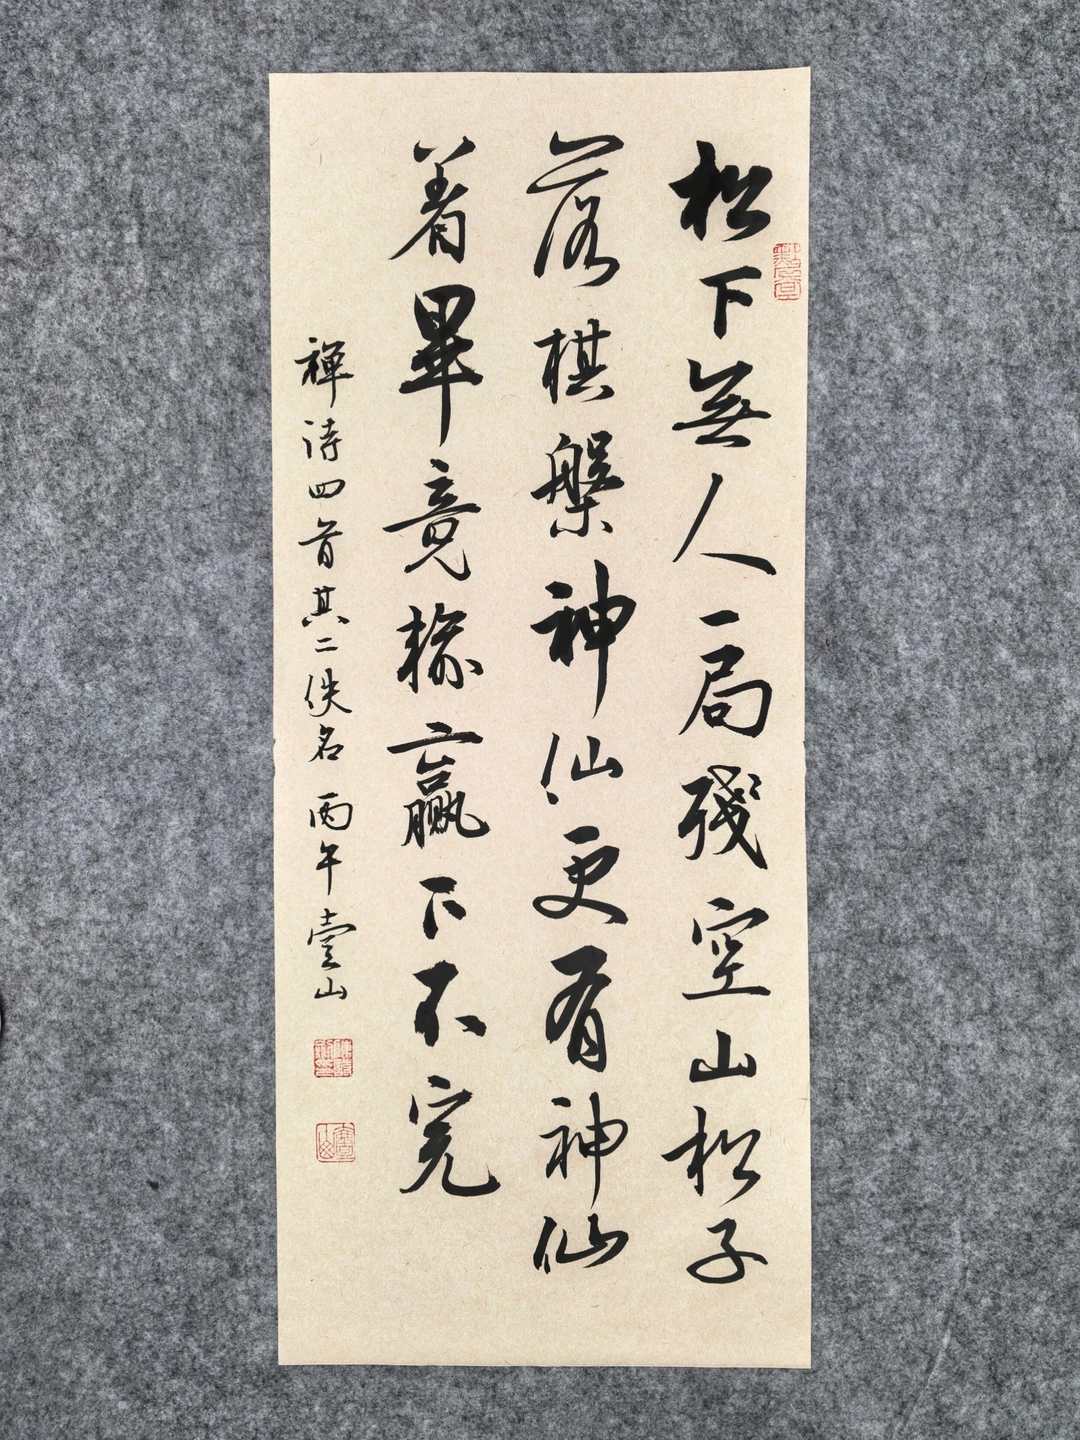 松下無人一局殘空山松子
落棋槃神仙更有神仙
着畢竟輸贏下不完
禪詩四首其二佚名丙午壹山